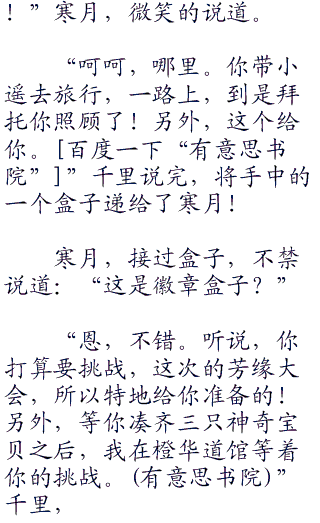 ！”寒月，微笑的说道。
“呵呵，哪里。你带小
遥去旅行，一路上，到是拜
托你照顾了！另外，这个给
你。[百度一下“有意思书
院”]”千里说完，将手中的
一个盒子递给了寒月！
寒月，接过盒子，不禁
说道：“这是徽章盒子？”
“恩，不错。听说，你
打算要挑战，这次的芳缘大
会，所以特地给你准备的！
另外，等你凑齐三只神奇宝
贝之后，我在橙华道馆等着
你的挑战。(有意思书院)”
千里，